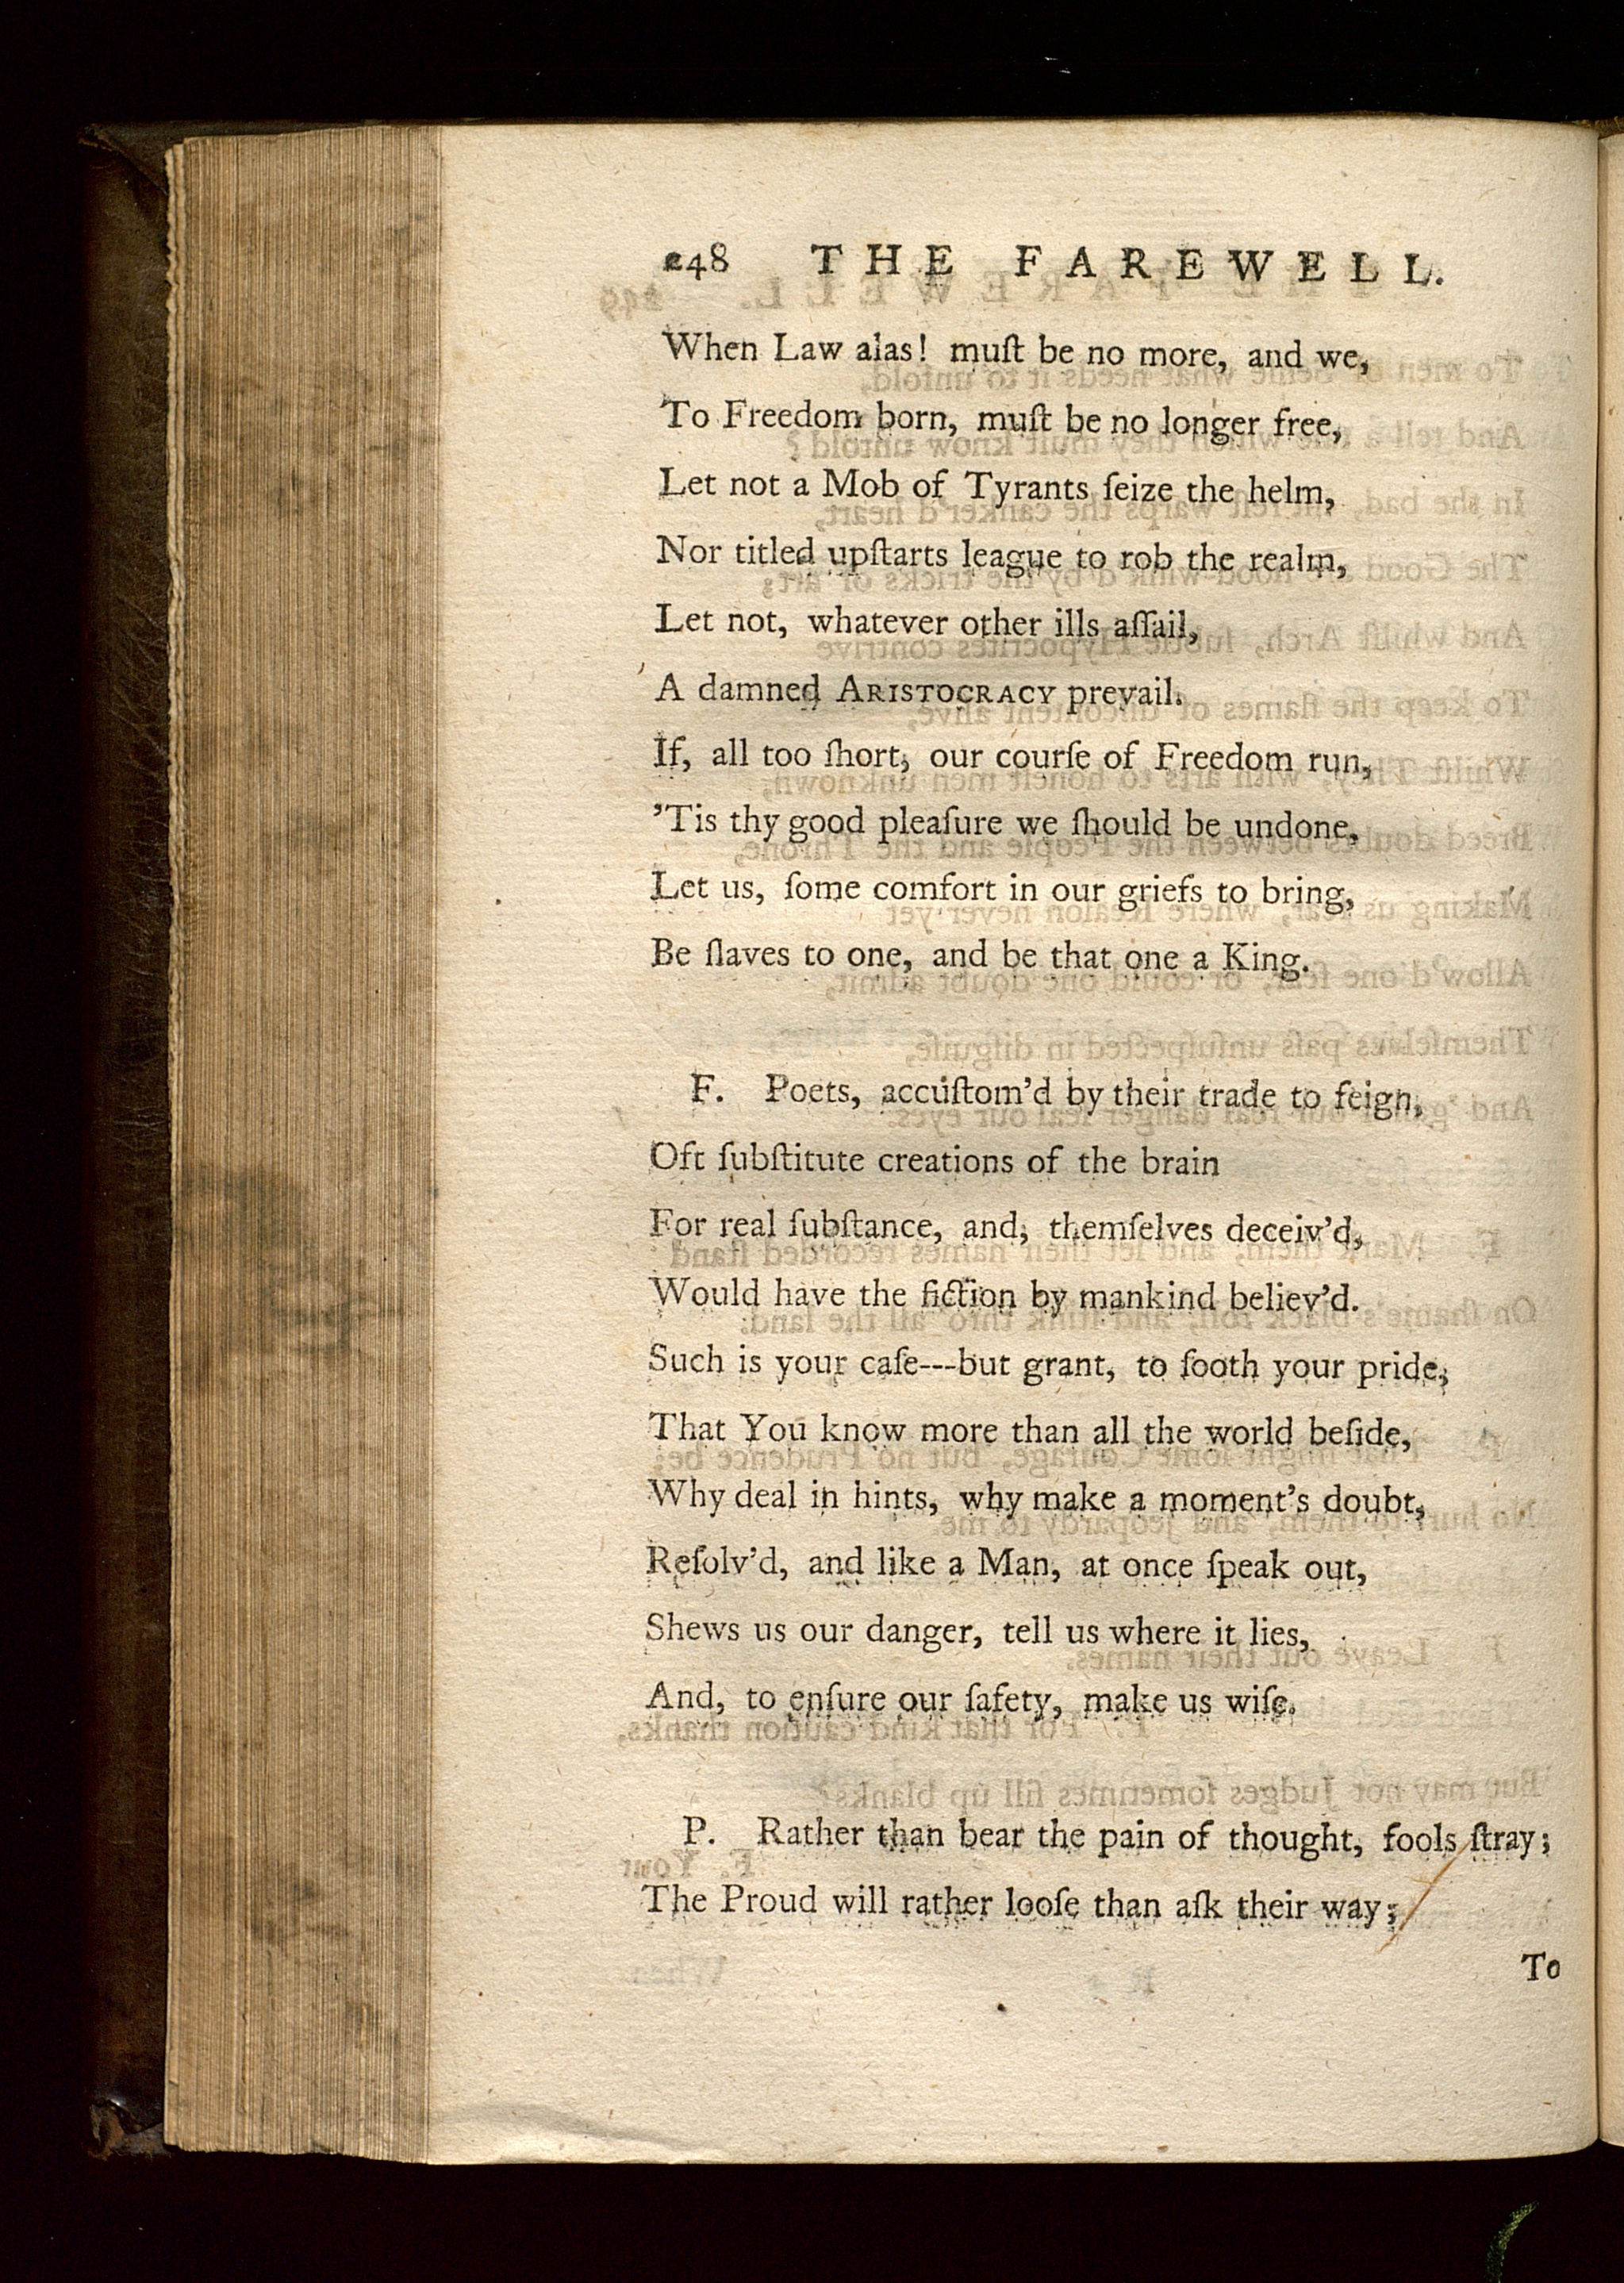 248 THE FAREWELL.
When Law alas! muſt be no more, and we,
To Freedom born, muſt be no longer free,
Let not a Mob of Tyrants ſeize the helm,
Nor titled upſtarts league to rob the realm,
Let not, whatever other ills aſſail,
A damned ARISTOCRACY prevail.
If, all too ſhort, our courſe of Freedom run,
'Tis thy good pleaſure we ſhould be undone,
Let us, ſome comfort in our griefs to bring,
Be ſlaves to one, and be that one a King.
F. Poets, accuſtom'd by their trade to feign,
Oft ſubſtitute creations of the brain
For real ſubſtance, and, themſelves deceiv'd,
Would have the fiction by mankind believ'd.
Such is your caſe---but grant, to ſooth your pride,
That You know more than all the world beſide,
Why deal in hints, why make a moment's doubt,
Reſolv'd, and like a Man, at once ſpeak out,
Shews us our danger, tell us where it lies,
And, to enſure our ſafety, make us wiſe.
P. Rather than bear the pain of thought, fools ſtray;
The Proud will rather looſe than aſk their way;
To